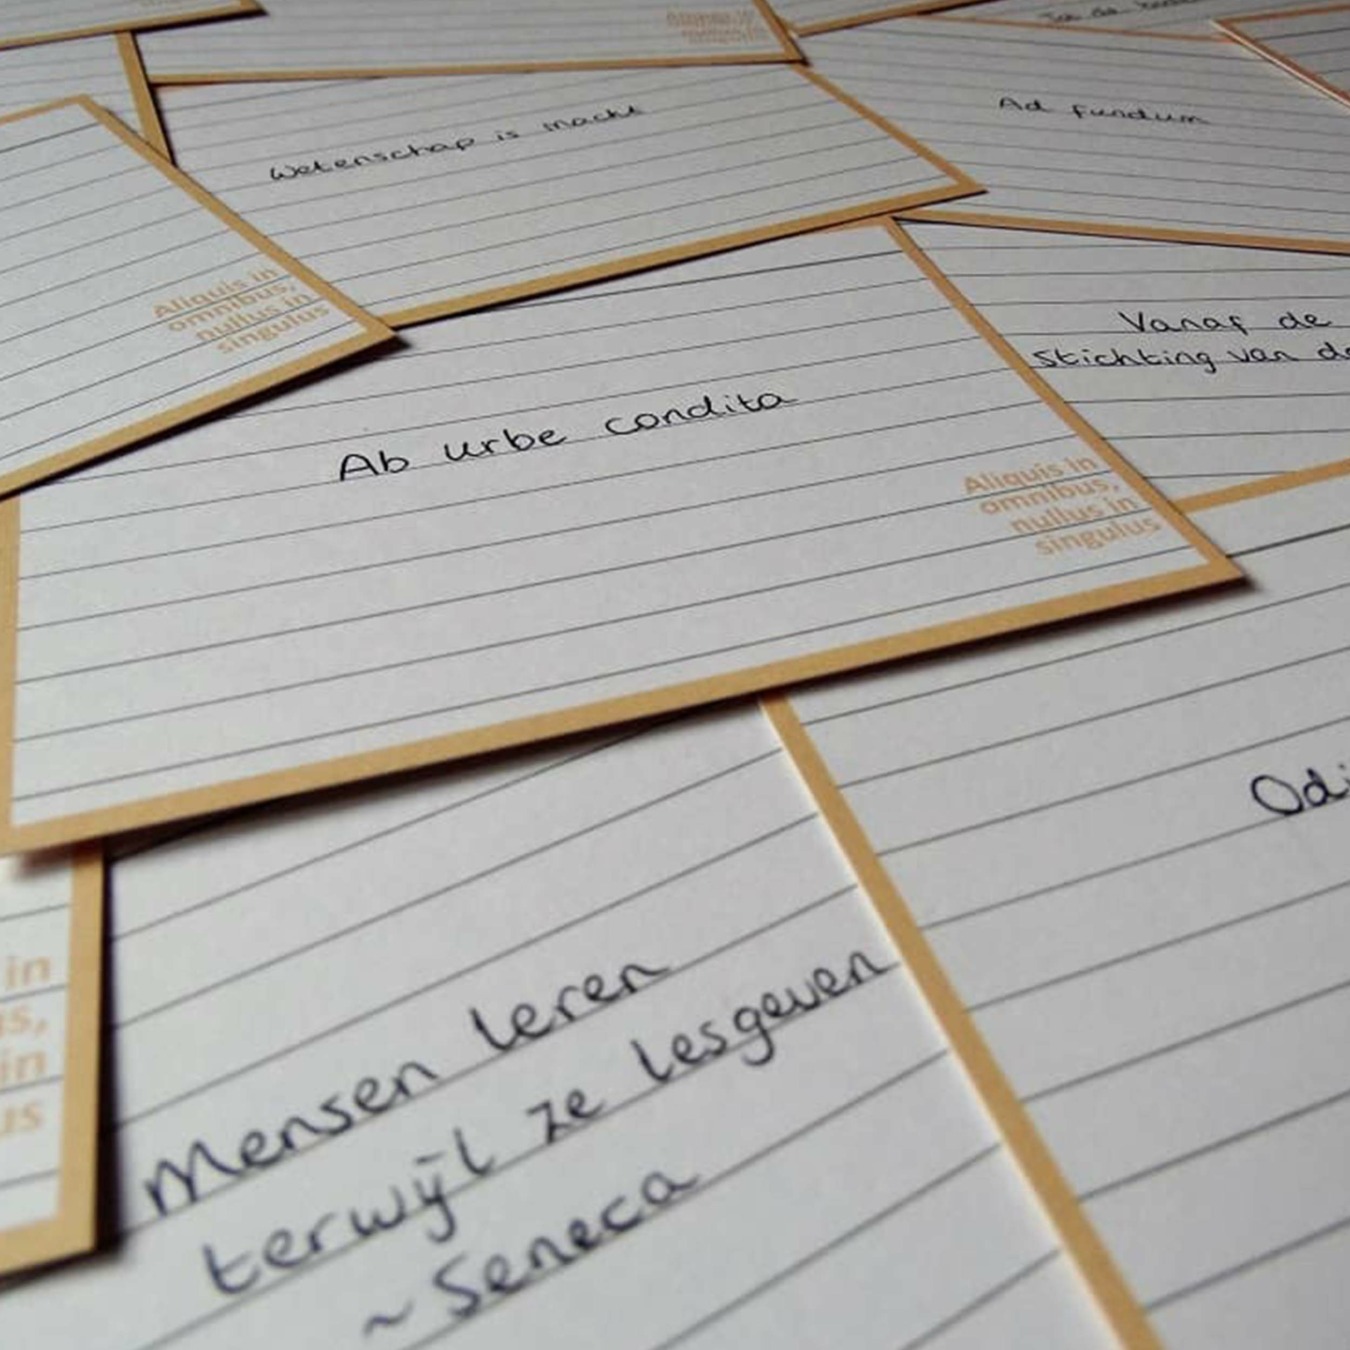 Wetenschap is macht
Ad fundum
Aliquis in
omnibus,
nullus in
singulus
Vanaf de
Stichting van de
Ab urbe condita
Aliquis in
omnibus,
nullus in
singulus
Odi
in
us,
in
us
Mensen leren
terwijl ze lesgeven
~ Seneca